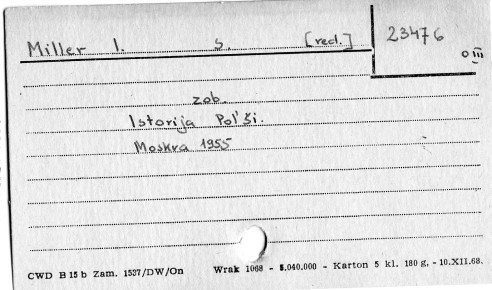 Miller I. S. [red.] 23476
O III
zob.
Istorija Pol'ši.
Moskva 1955
CWD B 15 b Zam. 1537/DW/On Wrak 1068 - 5.040.000 - Karton 5 kl. 180 g. - 10.XII.68.